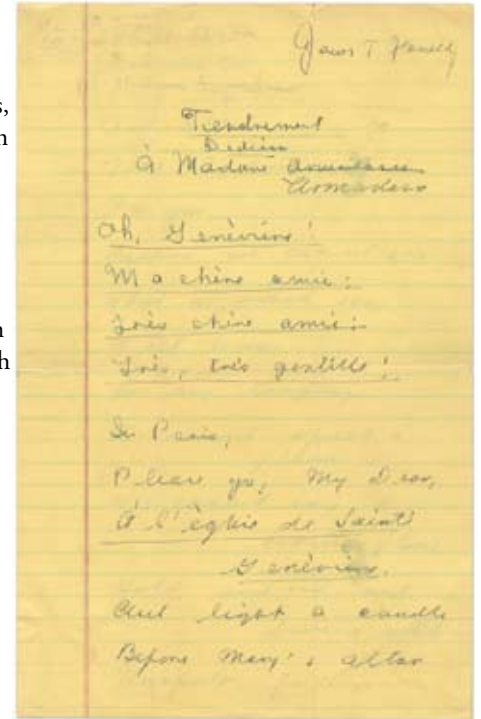 s,
n
n
h
James T Farrell
Tendrement
Dediée
À Madame
Oh, Genèvière!
Ma chère amie:
Très chère amie:
Très, très gentille!
In Paris,
Please go, My Dear,
À l'église de Sainte
Genèvière.
And light a candle
Before Mary's altar